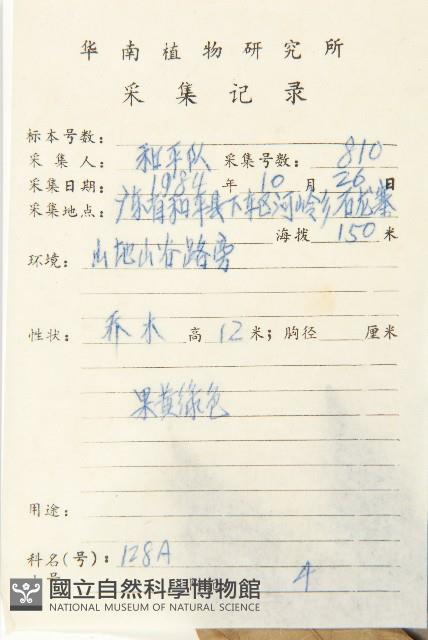 华南植物研究所
采集记录
标本号数:
采集人: 和平队 采集号数: 810
采集日期: 1984 年 10 月 26 日
采集地点: 广东省和平县下车区河岭乡石龙寨
海拨 150 米
环境: 山地山谷路旁
性状: 乔木 高 12 米; 胸径 厘米
果黄绿色
用途:
科名(号): 128A
4
國立自然科學博物館
NATIONAL MUSEUM OF NATURAL SCIENCE